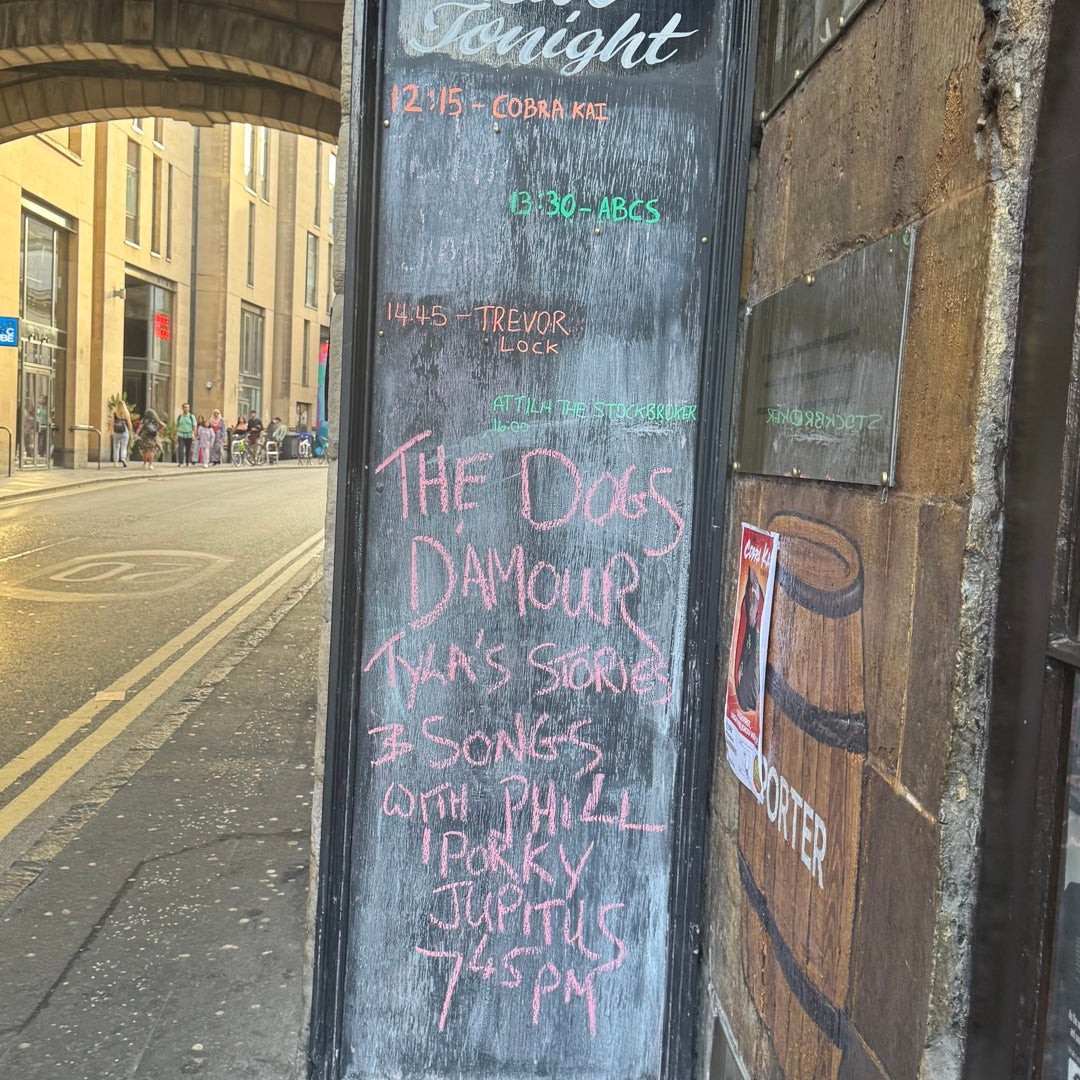 Tonight
12:15 - COBRA KAI
13:30 - ABCS
14:45 - TREVOR
LOCK
ATTILA THE STOCKBROKER
16:00
THE DOGS
DAMOUR
TYLA'S STORIES
3 SONGS
WITH PHILL
'PORKY
JUPITUS
7 45 PM
STOCKBROKER
COBRA KAI
PORTER
20